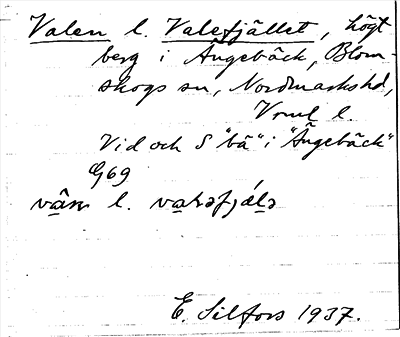 Valen l. Valefjället, högt
berg i Ängebäck, Blom-
skogs sn, Nordmarks hd,
Vrml l.
Vid och S "bä" i "Ängebäck"
G69
l.
E. Silfors 1937.